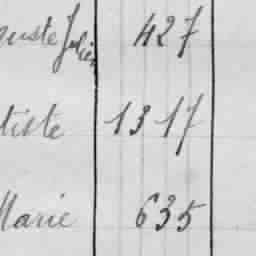 guste Julien 427
tiste 1317
Marie 635